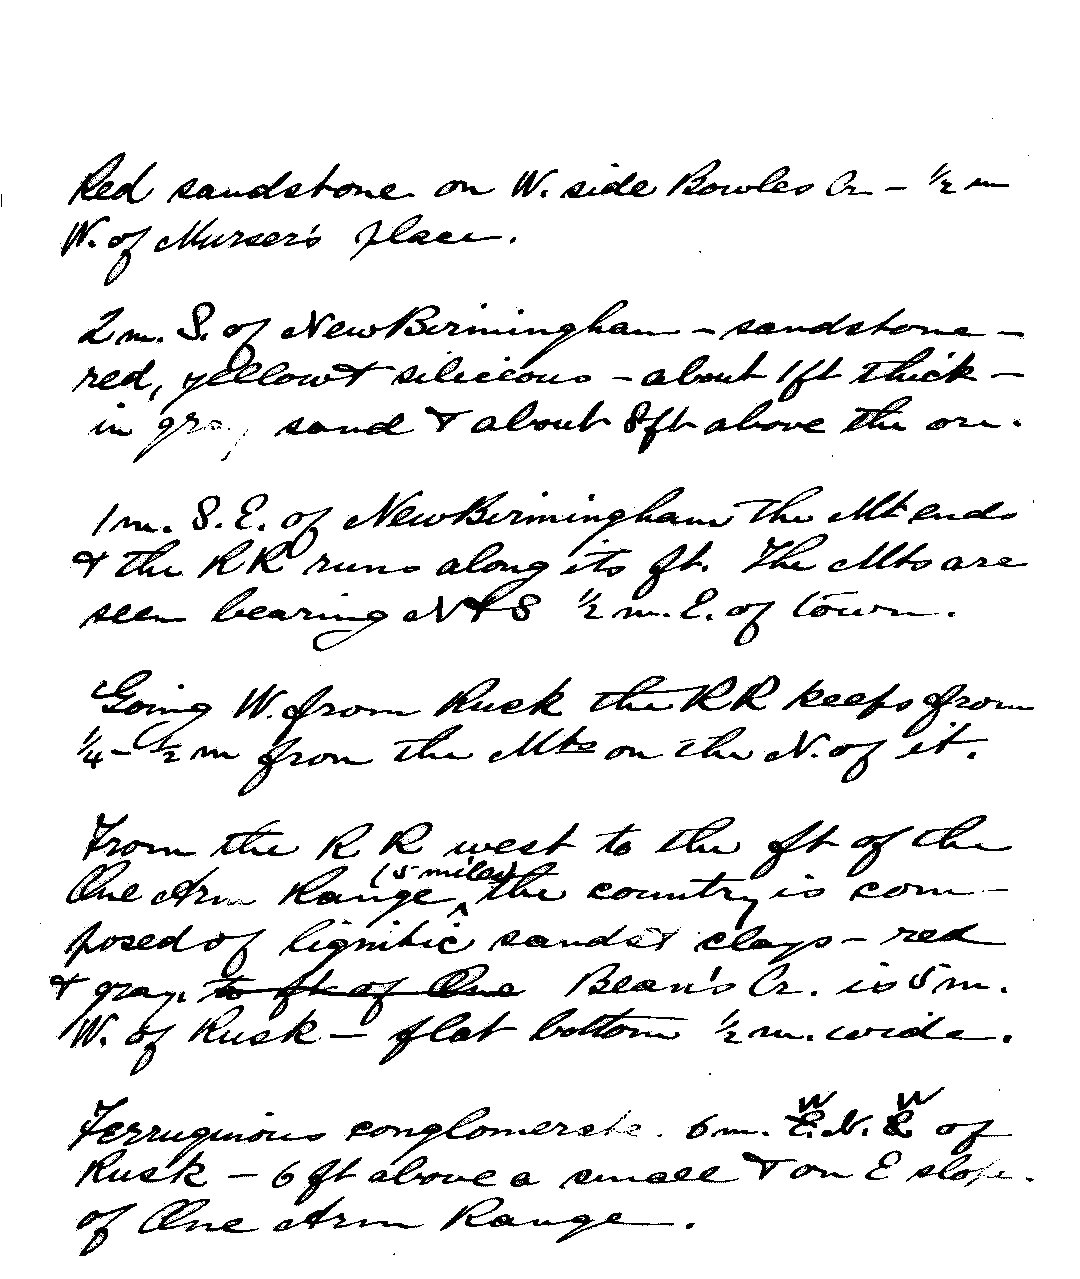 Red sandstone on W. side Bowles Cr – ½ m
W. of Murser's place.
2 m. S. of New Birmingham – sandstone –
red, yellow & silicious – about 1 ft thick –
in gray sand & about 8 ft above the ore.
1 m. S. E. of New Birmingham the Mt ends
& the RR runs along its ft. The Mts are
seen bearing N & S ½ m. E. of town.
Going W. from Rusk the RR keeps from
¼ – ½ m from the Mts on the N. of it.
From the R R west to the ft of the
One Arm Range (5 miles) the country is com-
posed of lignitic sands & clays – red
& gray. to ft of One Bean's Cr. is 5 m.
W. of Rusk – flat bottom ½ m. wide.
Ferruginous conglomerate. 6 m. W. N. W of
Rusk – 6 ft above a small & on E slope
of One Arm Range.